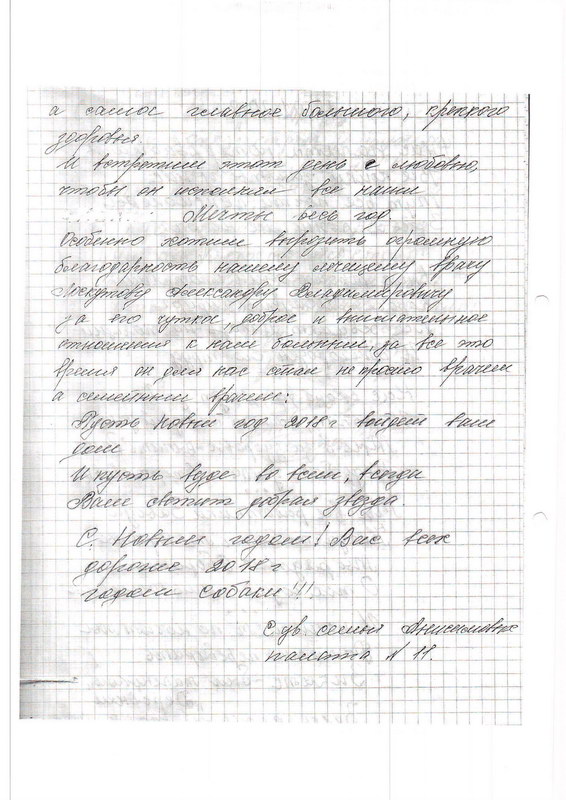 а самое главное большого, крепкого
здоровья.
И встретим этот день с любовью,
чтобы он исполнил все наши
Мечты весь год.
Особенно хотим выразить огромную
благодарность нашему лечащему врачу
Лоскутову Александру Владимировичу
за его чуткое, доброе и внимательное
отношения к нам больным, за все это
время он для нас стал не просто врачем
а семейным врачем:
Пусть Новый год 2018 г войдет вам
дом
И пусть везде во всем, всегда
Вам светит добрая звезда.
С. Новым годом! Вас всех
дорогие 2018 г
годом собаки!!!
С ув. семья Анисимовых
палата N 11.